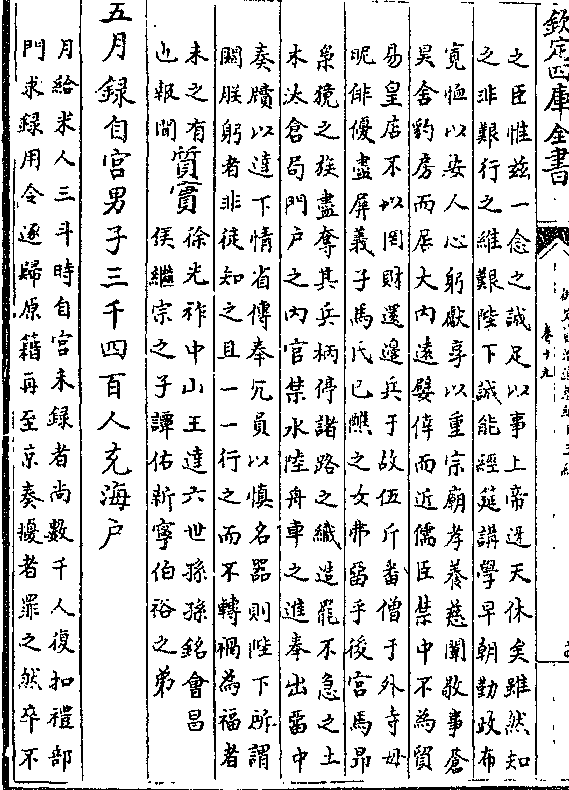 欽定四庫全書
卷十九
之臣惟兹一念之誠足以事上帝迓天休矣雖然知
之非艱行之維艱陛下誠能經筵講學早朝勤政布
寛恤以安人心躬獻享以重宗廟孝養慈闈敬事蒼
昊舍豹房而居大内遠嬖倖而近儒臣禁中不為貿
易皇店不以罔財還邊兵于故伍斥番僧于外寺毋
昵俳優盡屏義子馬氏已醮之女弗畱乎後宫馬昂
梟獍之族盡奪其兵柄停諸路之織造罷不急之土
木汰倉局門户之内官禁水陸舟車之進奉出畱中
奏牘以達下情省傳奉冗員以慎名器則陛下所謂
闕朕躬者非徒知之且一一行之而不轉禍為福者
未之有
也報聞
質實
徐光祚中山王達六世孫孫銘會昌
侯繼宗之子譚佑新寧伯裕之弟
五月録自宫男子三千四百人充海户
月給米人三斗時自宫未録者尚數千人復扣禮部
門求録用令逐歸原籍再至京奏擾者罪之然卒不